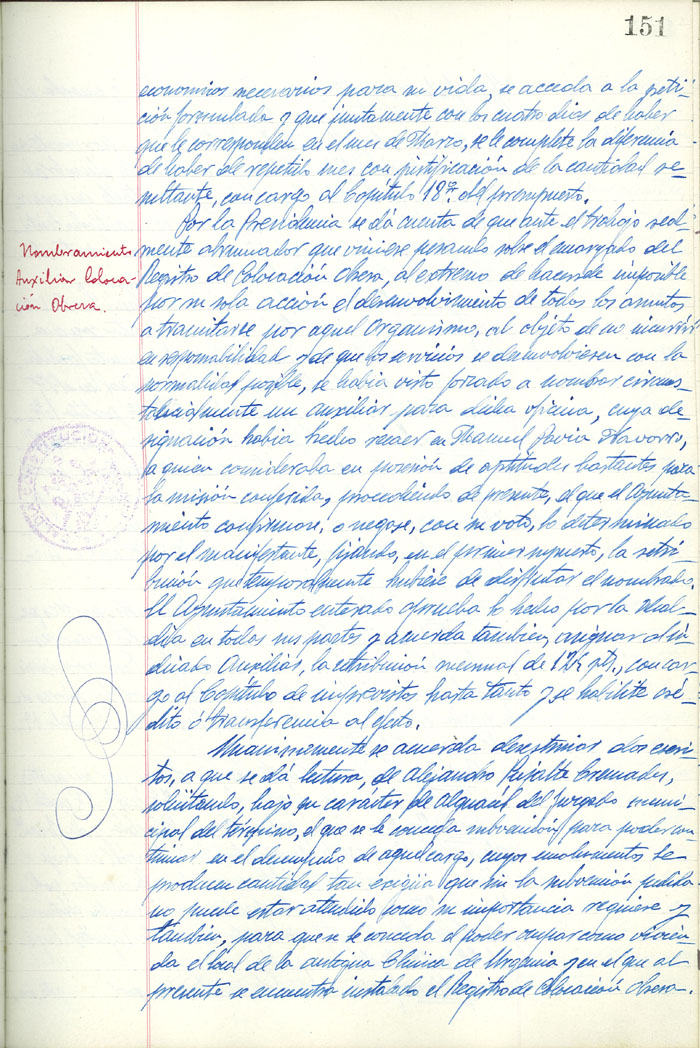 151
economicos necesarios para su vida, se acceda a la peti-
ción formulada y que juntamente con los cuatro dias de haber
que le corresponden en el mes de Marzo, se le complete la diferencia
de haber de repetido mes con justificación de la cantidad re-
sultante, con cargo al Capítulo 18º. del presupuesto.
Por la Presidencia se dá cuenta de que ante el trabajo real-
mente abrumador que viniere pesando sobre el encargado del
Registro de Colocación Obrera, al extremo de hacerle imposible
por su sola acción el desenvolvimiento de todos los asuntos
a tramitarse por aquel Organismo, al objeto de no incurrir
en responsabilidad y de que los servicios se desenvolviesen con la
normalidad posible, se habia visto forzado a nombrar circuns-
tancialmente un auxiliar para dicha oficina, cuya de-
signación habia hecho recaer en Manuel Pavia Navarro,
a quien consideraba en posesión de aptitudes bastantes para
la misión conferida, procediendo de presente, el que el Ayunta-
miento confirmase, o negase, con su voto, lo determinado
por el manifestante, fijando, en el primer supuesto, la retri-
bución que temporalmente hubiere de disfrutar el nombrado.
El Ayuntamiento enterado aprueba lo hecho por la Alcal-
día en todas sus partes y acuerda tambien, asignar al in-
dicado Auxiliar, la retribución mensual de 125 pts., con car-
go al Capítulo de imprevistos hasta tanto y se habilite cré-
dito ó transferencia al efecto.
Unanimemente se acuerda desestimar dos escri-
tos, a que se dá lectura, de Alejandro Rizalte Cremades,
solicitando, bajo su carácter de Alguacil del Juzgado muni-
cipal del término, el que se le conceda subvención para poder con-
tinuar en el desempeño de aquel cargo, cuyos emolumentos le
producen cantidad tan exigüa que sin la subvención pedida
no puede estar atendido como su importancia requiere y
tambien, para que se le conceda el poder ocupar como vivien-
da el local de la antigua Clinica de Urgencia y en el que al
presente se encuentra instalado el Registro de Colocación Obrera.
Nombramiento
Auxiliar Coloca-
ción Obrera.